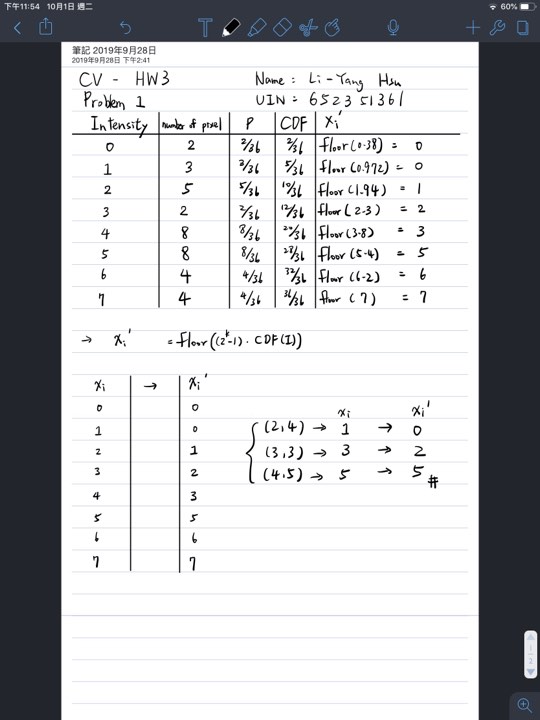 下午11:54 10月1日 週二 60%
筆記 2019年9月28日
2019年9月28日 下午2:41
CV - HW3 Name: Li-Yang Hsu
Problem 1 UIN: 652351361
Intensity number of pixel P CDF Xi'
0 2 2/36 2/36 floor(0.38) = 0
1 3 3/36 5/36 floor(0.972) = 0
2 5 5/36 10/36 floor(1.94) = 1
3 2 2/36 12/36 floor(2.3) = 2
4 8 8/36 20/36 floor(3.8) = 3
5 8 8/36 28/36 floor(5.4) = 5
6 4 4/36 32/36 floor(6.2) = 6
7 4 4/36 36/36 floor(7) = 7
→ Xi' = floor((2^k-1)·CDF(I))
Xi → Xi'
0 0
1 0
2 1
3 2
4 3
5 5
6 6
7 7
Xi Xi'
(2,4) → 1 → 0
(3,3) → 3 → 2
(4,5) → 5 → 5 #
1
2